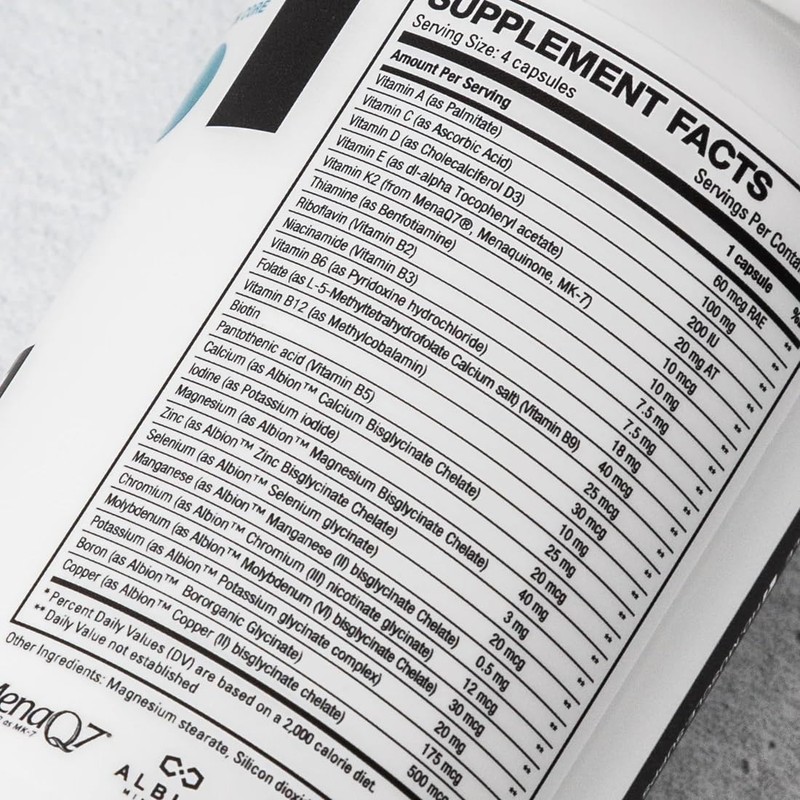 CORE
SUPPLEMENT FACTS
Serving Size: 4 capsules Servings Per
Amount Per Serving 1 capsule %
Vitamin A (as Palmitate) 60 mcg RAE **
Vitamin C (as Ascorbic Acid) 100 mg **
Vitamin D (as Cholecalciferol D3) 200 IU **
Vitamin E (as dl-alpha Tocopheryl acetate) 20 mg AT **
Vitamin K2 (from MenaQ7®, Menaquinone, MK-7) 10 mcg **
Thiamine (as Benfotiamine) 10 mg **
Riboflavin (Vitamin B2) 7.5 mg **
Niacinamide (Vitamin B3) 7.5 mg **
Vitamin B6 (as Pyridoxine hydrochloride) 18 mg **
Folate (as L-5-Methyltetrahydrofolate Calcium salt) (Vitamin B9) 40 mcg **
Vitamin B12 (as Methylcobalamin) 25 mcg **
Biotin 30 mcg **
Pantothenic acid (Vitamin B5) 10 mg **
Calcium (as Albion™ Calcium Bisglycinate Chelate) 25 mg **
Iodine (as Potassium iodide) 20 mcg **
Magnesium (as Albion™ Magnesium Bisglycinate Chelate) 40 mg **
Zinc (as Albion™ Zinc Bisglycinate Chelate) 3 mg **
Selenium (as Albion™ Selenium glycinate) 20 mcg **
Manganese (as Albion™ Manganese (II) bisglycinate Chelate) 0.5 mg **
Chromium (as Albion™ Chromium (III) nicotinate glycinate) 12 mcg **
Molybdenum (as Albion™ Molybdenum (VI) bisglycinate Chelate) 30 mcg **
Potassium (as Albion™ Potassium glycinate complex) 20 mg **
Boron (as Albion™ Bororganic Glycinate) 175 mcg
Copper (as Albion™ Copper (II) bisglycinate chelate) 500 mcg
* Percent Daily Values (DV) are based on a 2,000 calorie diet.
** Daily Value not established
Other Ingredients: Magnesium stearate, Silicon
MenaQ7
as MK-7